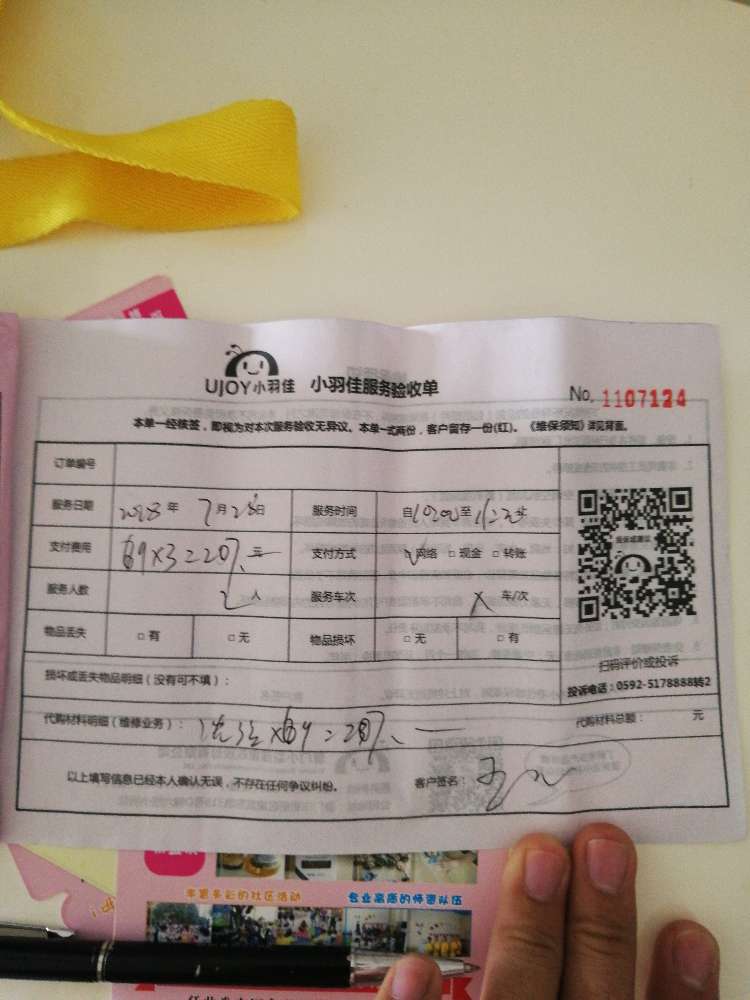 UJOY小羽佳 小羽佳服务验收单 No. 1107124
本单一经核签，即视为对本次服务验收无异议。本单一式两份，客户留存一份(红)。《维保须知》详见背面。
订单编号
服务日期 年 7月28日 服务时间 自10:00至
支付费用 69x3=207元 支付方式 网络 □现金 □转账
服务人数 2人 服务车次 X 车/次
物品丢失 □有 □无 物品损坏 □无 □有
损坏或丢失物品明细（没有可不填）：
代购材料明细（维修业务）： x69=207 代购材料总额： 元
以上填写信息已经本人确认无误，不存在任何争议纠纷。 客户签名：
投诉或建议
扫码评价或投诉
投诉电话：0592-5178888转2
丰富多彩的社区活动 专业高质的师资队伍